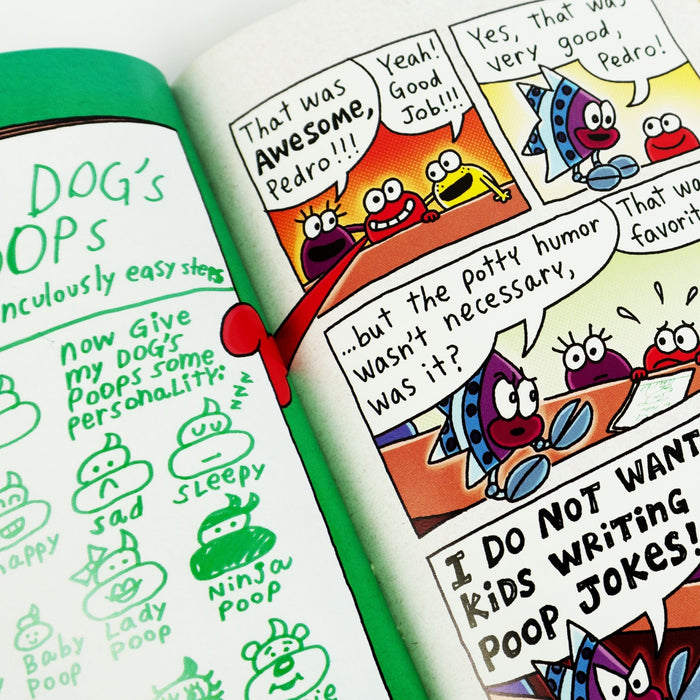 DOG'S
easy steps
now Give
my DOG'S
Poops some
personality:
z
z
z
happy
sad
SLEEPY
Ninja
Poop
Lady
Poop
Baby
Poop
That was
AWESOME,
Pedro!!!
Yeah!
Good
Job!!!
Yes, that was
very good,
Pedro!
...but the potty humor
wasn't necessary,
was it?
That was
I DO NOT WANT
KiDS WRiTiNG
POOP JOKES!